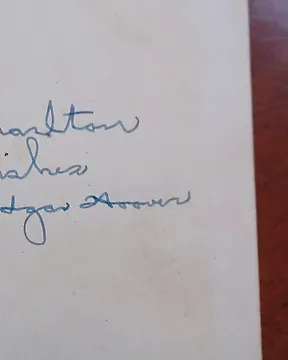 harlton
ishes
dgar Hoover